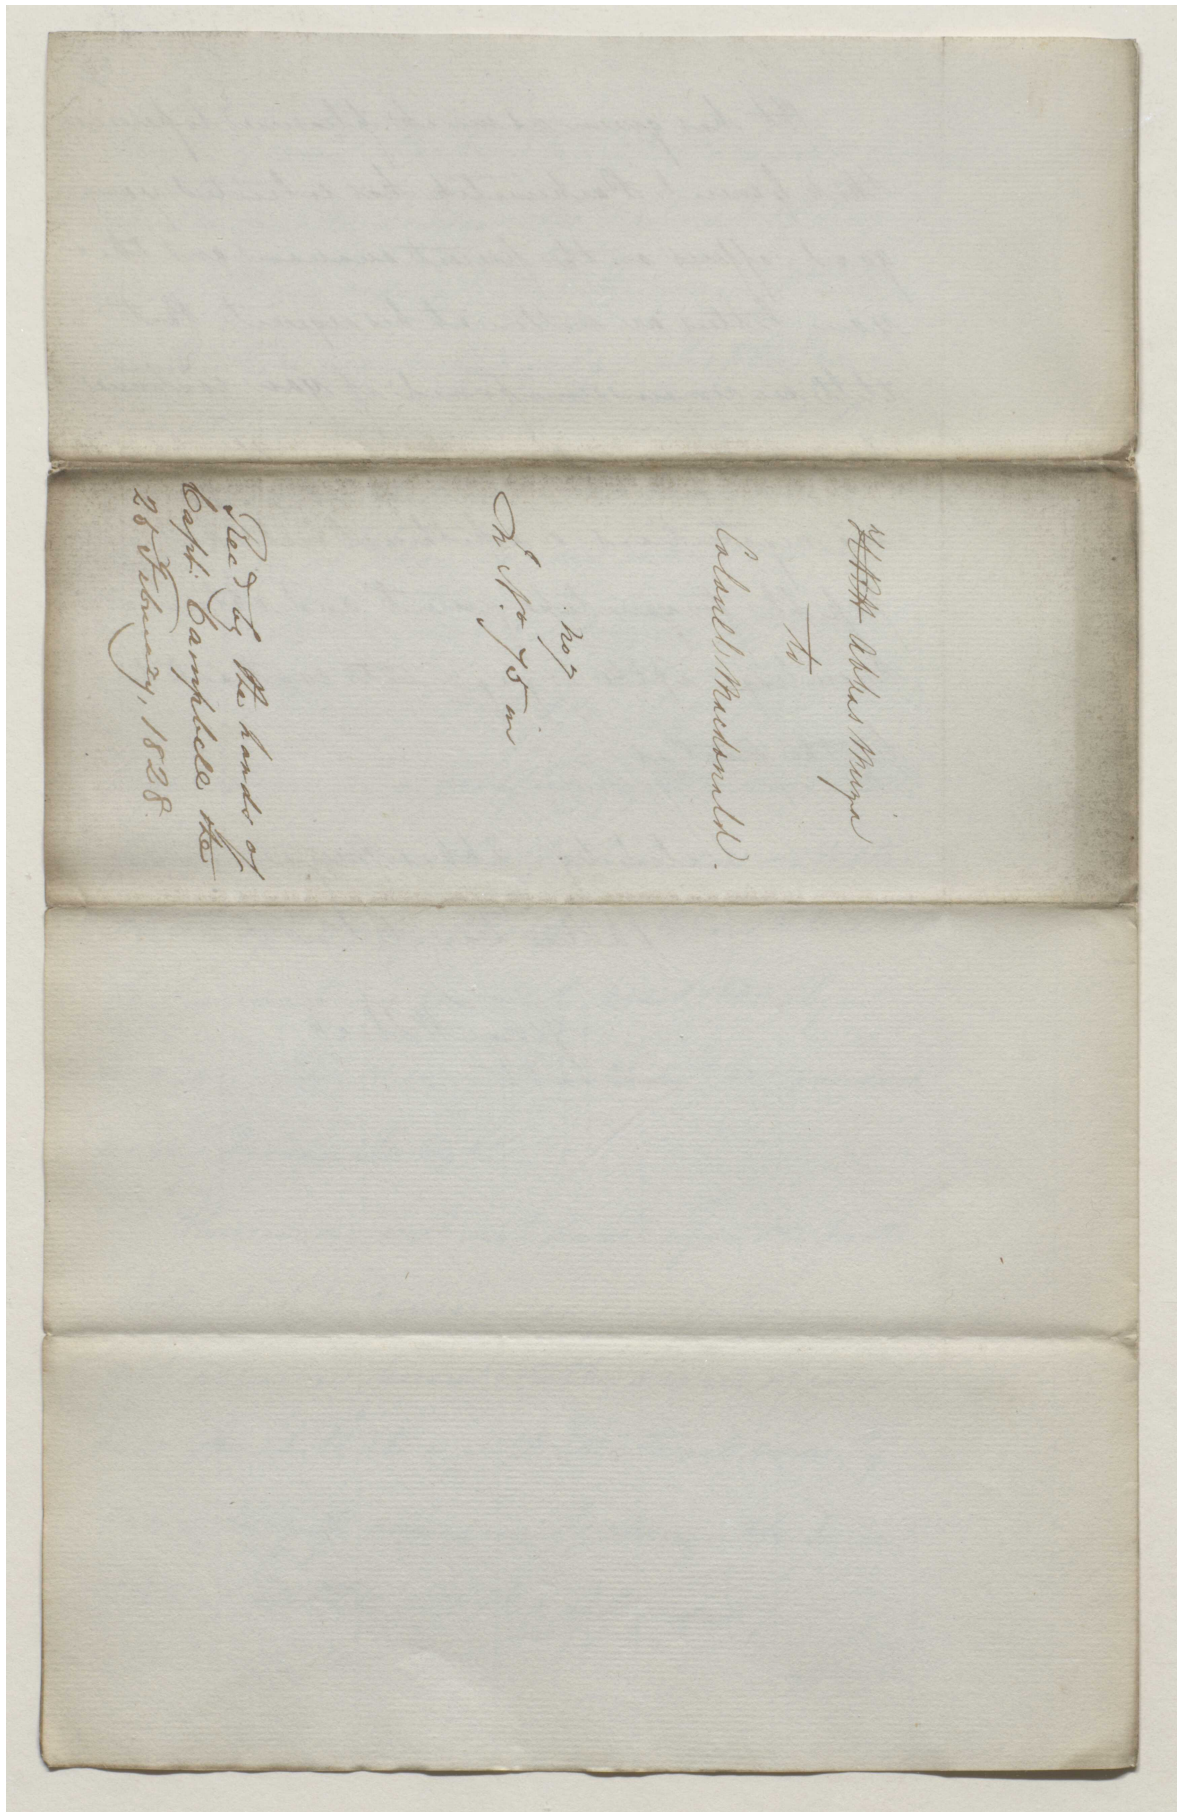 HRH Abbas Mirza
to
Colonel Macdonald.
No 7
in No. 75 in
Rec'd by the hands of
Capt. Campbell the
28 February, 1828.